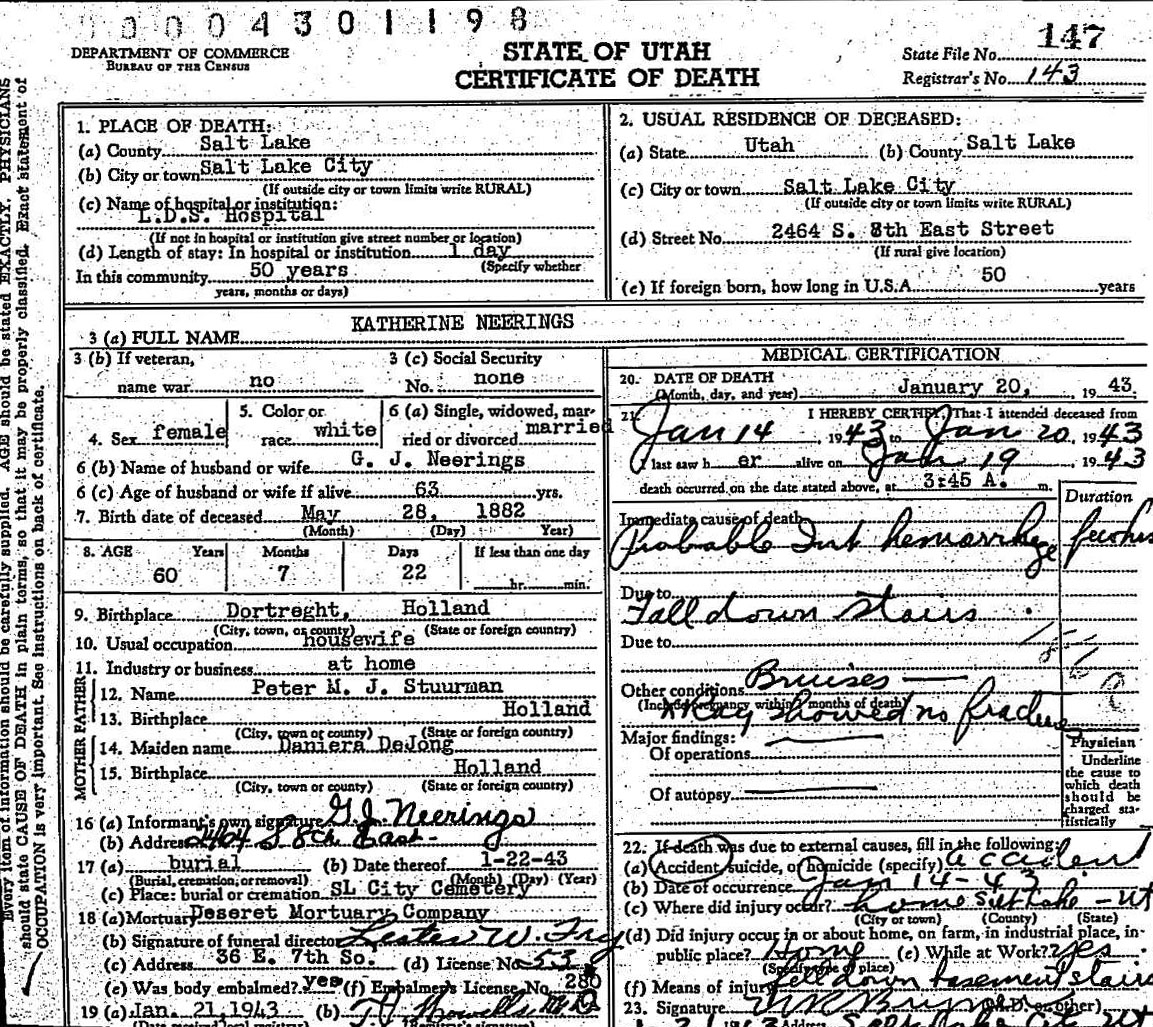 0 0 0 4 3 0 1 1 9 8
DEPARTMENT OF COMMERCE
BUREAU OF THE CENSUS
STATE OF UTAH
CERTIFICATE OF DEATH
State File No. 147
Registrar's No. 143
Every item of information should be carefully supplied. AGE should be stated EXACTLY. PHYSICIANS
should state CAUSE OF DEATH in plain terms, so that it may be properly classified. Exact statement of
OCCUPATION is very important. See instructions on back of certificate.
1. PLACE OF DEATH:
(a) County Salt Lake
(b) City or town Salt Lake City
(If outside city or town limits write RURAL)
(c) Name of hospital or institution:
L.D.S. Hospital
(If not in hospital or institution give street number or location)
(d) Length of stay: In hospital or institution 1 day
(Specify whether
In this community 50 years
years, months or days)
2. USUAL RESIDENCE OF DECEASED:
(a) State Utah (b) County Salt Lake
(c) City or town Salt Lake City
(If outside city or town limits write RURAL)
(d) Street No. 2464 S. 8th East Street
(If rural give location)
(e) If foreign born, how long in U.S.A. 50 years
3 (a) FULL NAME KATHERINE NEERINGS
3 (b) If veteran, name war no
3 (c) Social Security No. none
4. Sex female
5. Color or race white
6 (a) Single, widowed, married or divorced married
6 (b) Name of husband or wife G. J. Neerings
6 (c) Age of husband or wife if alive 63 yrs.
7. Birth date of deceased May 28, 1882
(Month) (Day) Year)
8. AGE Years Months Days If less than one day
60 7 22 hr. min.
9. Birthplace Dortreght, Holland
(City, town, or county) (State or foreign country)
10. Usual occupation housewife
11. Industry or business at home
FATHER
12. Name Peter M. J. Stuurman
13. Birthplace Holland
(City, town or county) (State or foreign country)
MOTHER
14. Maiden name Daniera DeJong
15. Birthplace Holland
(City, town or county) (State or foreign country)
16 (a) Informant's own signature G.J. Neerings
(b) Address 2464 S 8th East
17 (a) burial (b) Date thereof 1-22-43
(Burial, cremation, or removal) (Month) (Day) (Year)
(c) Place: burial or cremation SL City Cemetery
18 (a) Mortuary Deseret Mortuary Company
(b) Signature of funeral director Lester W. Fry
(c) Address 36 E. 7th So. (d) License No. 53
(e) Was body embalmed? yes (f) Embalmer's License No. 286
19 (a) Jan. 21, 1943 (b) M.D.
(Date received local registrar) (Registrar's signature)
MEDICAL CERTIFICATION
20. DATE OF DEATH
(Month, day, and year) January 20, 1943.
21. I HEREBY CERTIFY, That I attended deceased from
Jan 14, 1943 to Jan 20, 1943
I last saw h er alive on Jan 19 1943
death occurred on the date stated above, at 3:45 A. m.
Duration
Immediate cause of death
Probable Int hemorrhage few hrs
Due to
Fall down stairs.
Due to
Other conditions Bruises
(Include pregnancy within 3 months of death)
XRay showed no fracture
Major findings:
Of operations
Of autopsy
Physician
Underline
the cause to
which death
should be
charged sta-
tistically
22. If death was due to external causes, fill in the following:
(a) Accident, suicide, or homicide (specify) accident
(b) Date of occurrence Jan 14-43
(c) Where did injury occur? home Salt Lake - Ut
(City or town) (County) (State)
(d) Did injury occur in or about home, on farm, in industrial place, in
public place? Home (e) While at Work? yes
(Specify type of place)
(f) Means of injury fell down basement stairs
23. Signature (M.D. or other)
Address Salt Lake City Ut